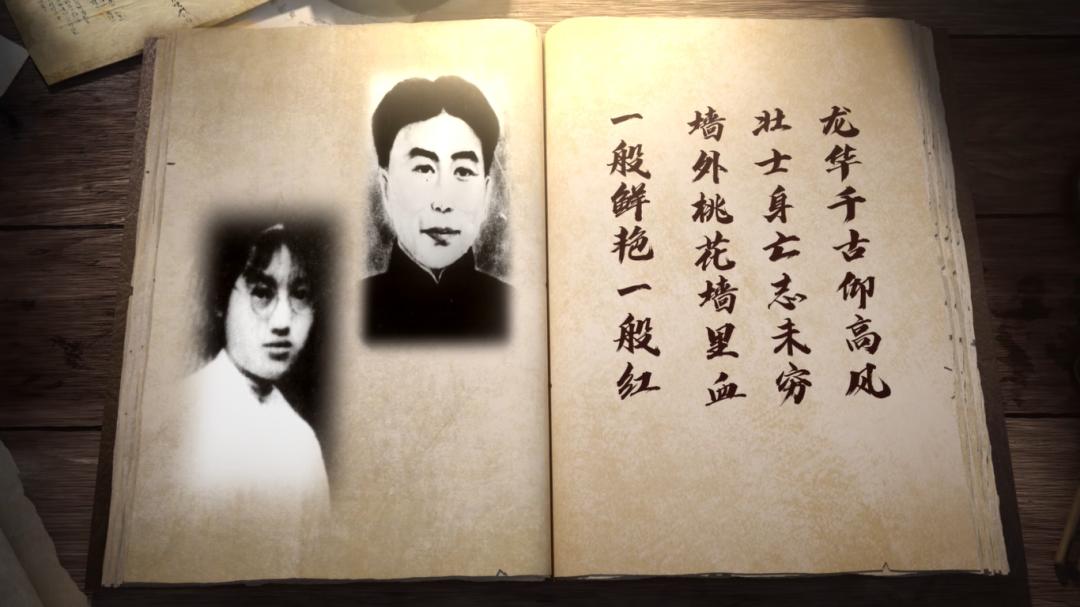 龙华千古仰高风
壮士身亡志未穷
墙外桃花墙里血
一般鲜艳一般红